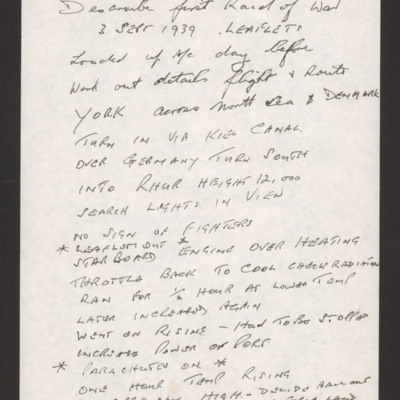 Describe first Raid of War
3 SEPT 1939 . LEAFLETS
Loaded up A/c day before
Work out details flight & Route
YORK across North Sea & DENMARK
TURN IN VIA KIEL CANAL.
OVER GERMANY TURN SOUTH
INTO RHUR HEIGHT 12,000
SEARCH LIGHTS IN VIEW
NO SIGN OF FIGHTERS
* LEAFLETS OUT *
STARBOARD ENGINE OVER HEATING
THROTTLE BACK TO COOL CHECK RADIATOR
RAN FOR 1/4 HOUR AT LOWER TEMP
LATER INCREASED AGAIN
WENT ON RISING - HAD TO BE STOPPED
INCREASE POWER OF PORT
* PARACHUTES ON *
ONE HOUR TEMP RISING
HIGH - DECIDE BALE OUT